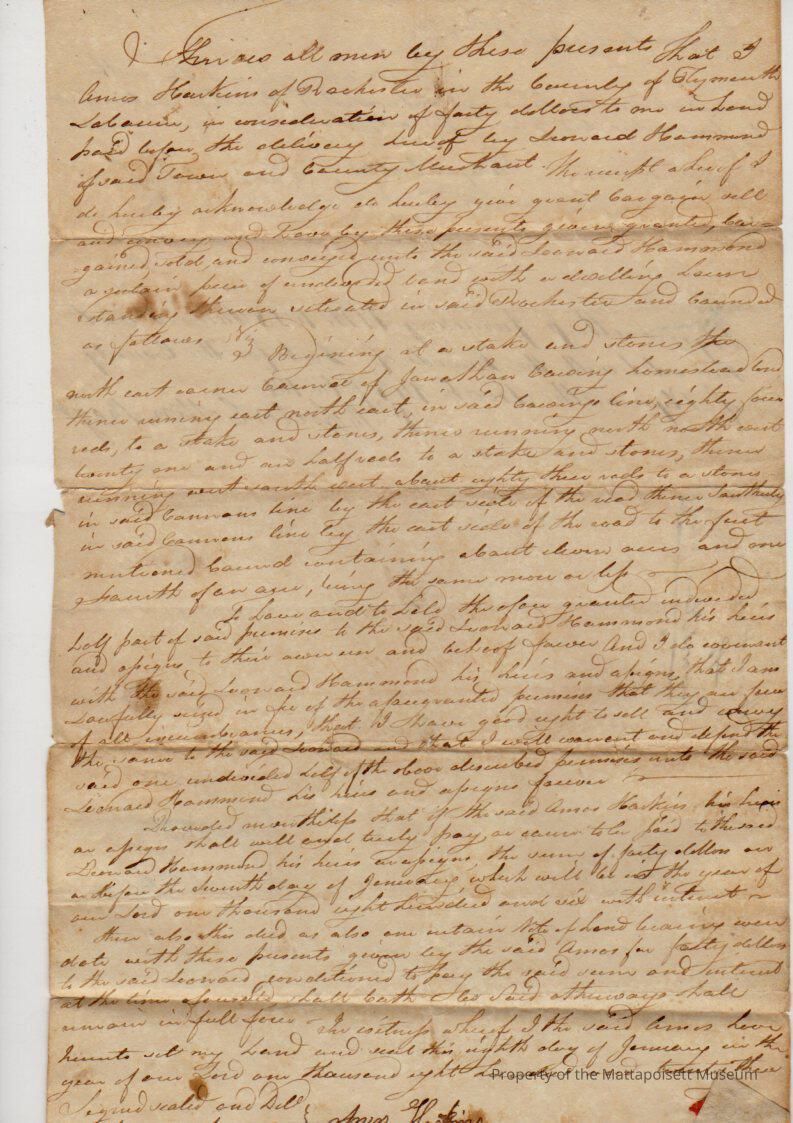 Know all men by these presents that I
Amos Haskins of Rochester in the County of Plymouth
Labourer, in consideration of forty dollors to me in hand
paid before the delivery hereof by Leonard Hammond
of said Town and County Merchant the receipt whereof I
do hereby acknowledge do hereby give grant bargain sell
and convey and have by these presents given granted, bar-
gained, sold, and conveyed unto the said Leonard Hammond
a certain piece of undivided land with a dwelling house
standing thereon situated in said Rochester and bounded
as follows Viz Begining at a stake and stones the
north east corner bound of Jonathan Cowing homestead land
thence running east north east, in said Cowings line, eighty four
rods, to a stake and stones, thence running north north west
twenty one and an half rods to a stake and stones, thence
running west south west about eighty three rods to a stones
in said Cannons line by the east side of the road thence Southerly
in said Cannons line by the east side of the road to the first
mentioned bound containing about eleven acres and one
fourth of an acre, being the same more or less
To have and to hold the afore granted undivided
half part of said premises to the said Leonard Hammond his heirs
and assigns to their own use and behoof forever And I do covenant
with the said Leonard Hammond his heirs and assigns, that I am
Lawfully seized in fee of the aforegranted premises that they are free
of all incumbrances, that I have good right to sell and convey
the same to the said Leonard and that I will warrant and defend the
said one undivided half of the above described premises unto the said
Leonard Hammond his heirs and assigns forever
Provided nevertheless that if the said Amos Haskins his heirs
or assigns shall well and truly pay or cause to be paid to the said
Leonard Hammond his heirs or assigns, the sum of forty dollors on
or before the seventh day of January which will be in the year of
our Lord one thousand eight hundred and six with interest
then also this deed as also one certain Note of hand bearing even
date with these presents given by the said Amos for forty dollors
to the said Leonard conditioned to pay the said sum and interest
at the time aforesaid shall both be Void otherways shall
remain in full force In witness whereof I the said Amos have
hereunto set my hand and seal this eighth day of January in the
year of our Lord one thousand eight
Signed sealed and Dell
Amos Haskins
Property of the Mattapoisett Museum